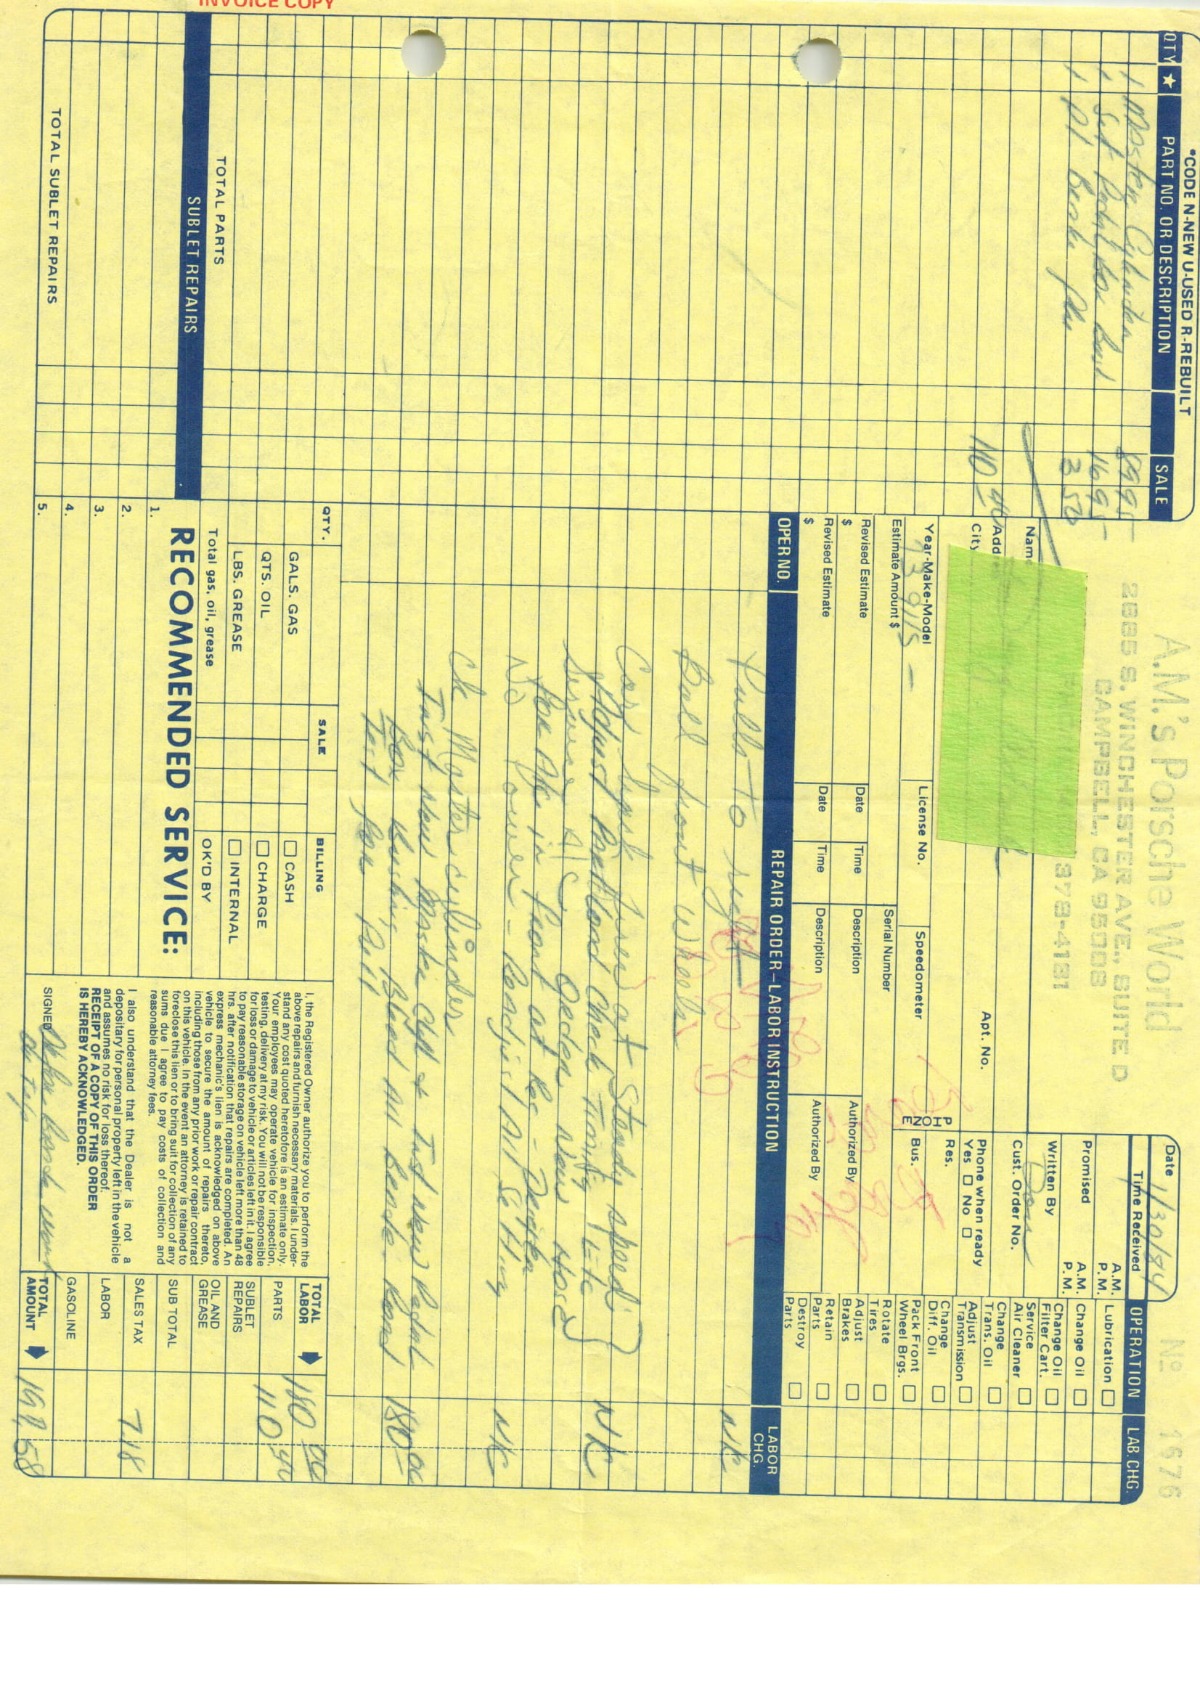 INVOICE COPY
*CODE N-NEW U-USED R-REBUILT
QTY ★ PART NO. OR DESCRIPTION SALE
1 Master Cylinder 89 95
1 Set 16 95
1 Pt Brake 3 50
110 40
TOTAL PARTS
SUBLET REPAIRS
TOTAL SUBLET REPAIRS
A.M.'s Porsche World
2685 S. WINCHESTER AVE., SUITE D
CAMPBELL, CA 95008
379-4181
Nº 1676
Name
Add
City
Apt. No.
Date 1/30/84
Time Received A.M. P.M.
Promised A.M. P.M.
Written By
Don
Cust. Order No.
Phone when ready
Yes ☐ No ☐
PHONE
Res.
Bus.
Year-Make-Model
73 911S
License No.
Speedometer
Estimate Amount $
Serial Number
Revised Estimate
$
Date
Time
Description
Authorized By
Revised Estimate
$
Date
Time
Description
Authorized By
OPERATION LAB CHG.
Lubrication ☐
Change Oil ☐
Change Oil Filter Cart. ☐
Service Air Cleaner ☐
Change Trans. Oil ☐
Adjust Transmission ☐
Change Diff. Oil ☐
Pack Front Wheel Brgs. ☐
Rotate Tires ☐
Adjust Brakes ☐
Retain Parts ☐
Destroy Parts ☐
OPER NO. REPAIR ORDER–LABOR INSTRUCTION LABOR CHG.
Pulls to right NC
Bal front wheels
Car at Steady speed
Adjust Check Timing Etc NC
A/C Order New Hoses
For A/C in Front at
No Power - Readjust All Setting NC
Ck Master cylinder
Inst New Master Cyld + Inst New Pedal
Box Bushing Bleed All Brake 180 00
Test for Pull
QTY. SALE BILLING
GALS. GAS
QTS. OIL
LBS. GREASE
Total gas, oil, grease
☐ CASH
☐ CHARGE
☐ INTERNAL
OK'D BY
RECOMMENDED SERVICE:
1.
2.
3.
4.
5.
I, the Registered Owner authorize you to perform the
above repairs and furnish necessary materials. I under-
stand any cost quoted heretofore is an estimate only.
Your employees may operate vehicle for inspection,
testing, delivery at my risk. You will not be responsible
for loss or damage to vehicle or articles left in it. I agree
to pay reasonable storage on vehicle left more than 48
hrs. after notification that repairs are completed. An
express mechanic's lien is acknowledged on above
vehicle to secure the amount of repairs thereto,
including those from any prior work or repair contract
on this vehicle. In the event an attorney is retained to
foreclose this lien or to bring suit for collection of any
sums due I agree to pay costs of collection and
reasonable attorney fees.
I also understand that the Dealer is not a
depositary for personal property left in the vehicle
and assumes no risk for loss thereof.
RECEIPT OF A COPY OF THIS ORDER
IS HEREBY ACKNOWLEDGED.
SIGNED
TOTAL LABOR 180 00
PARTS 110 40
SUBLET REPAIRS
OIL AND GREASE
SUB TOTAL
SALES TAX 7.18
LABOR
GASOLINE
TOTAL AMOUNT